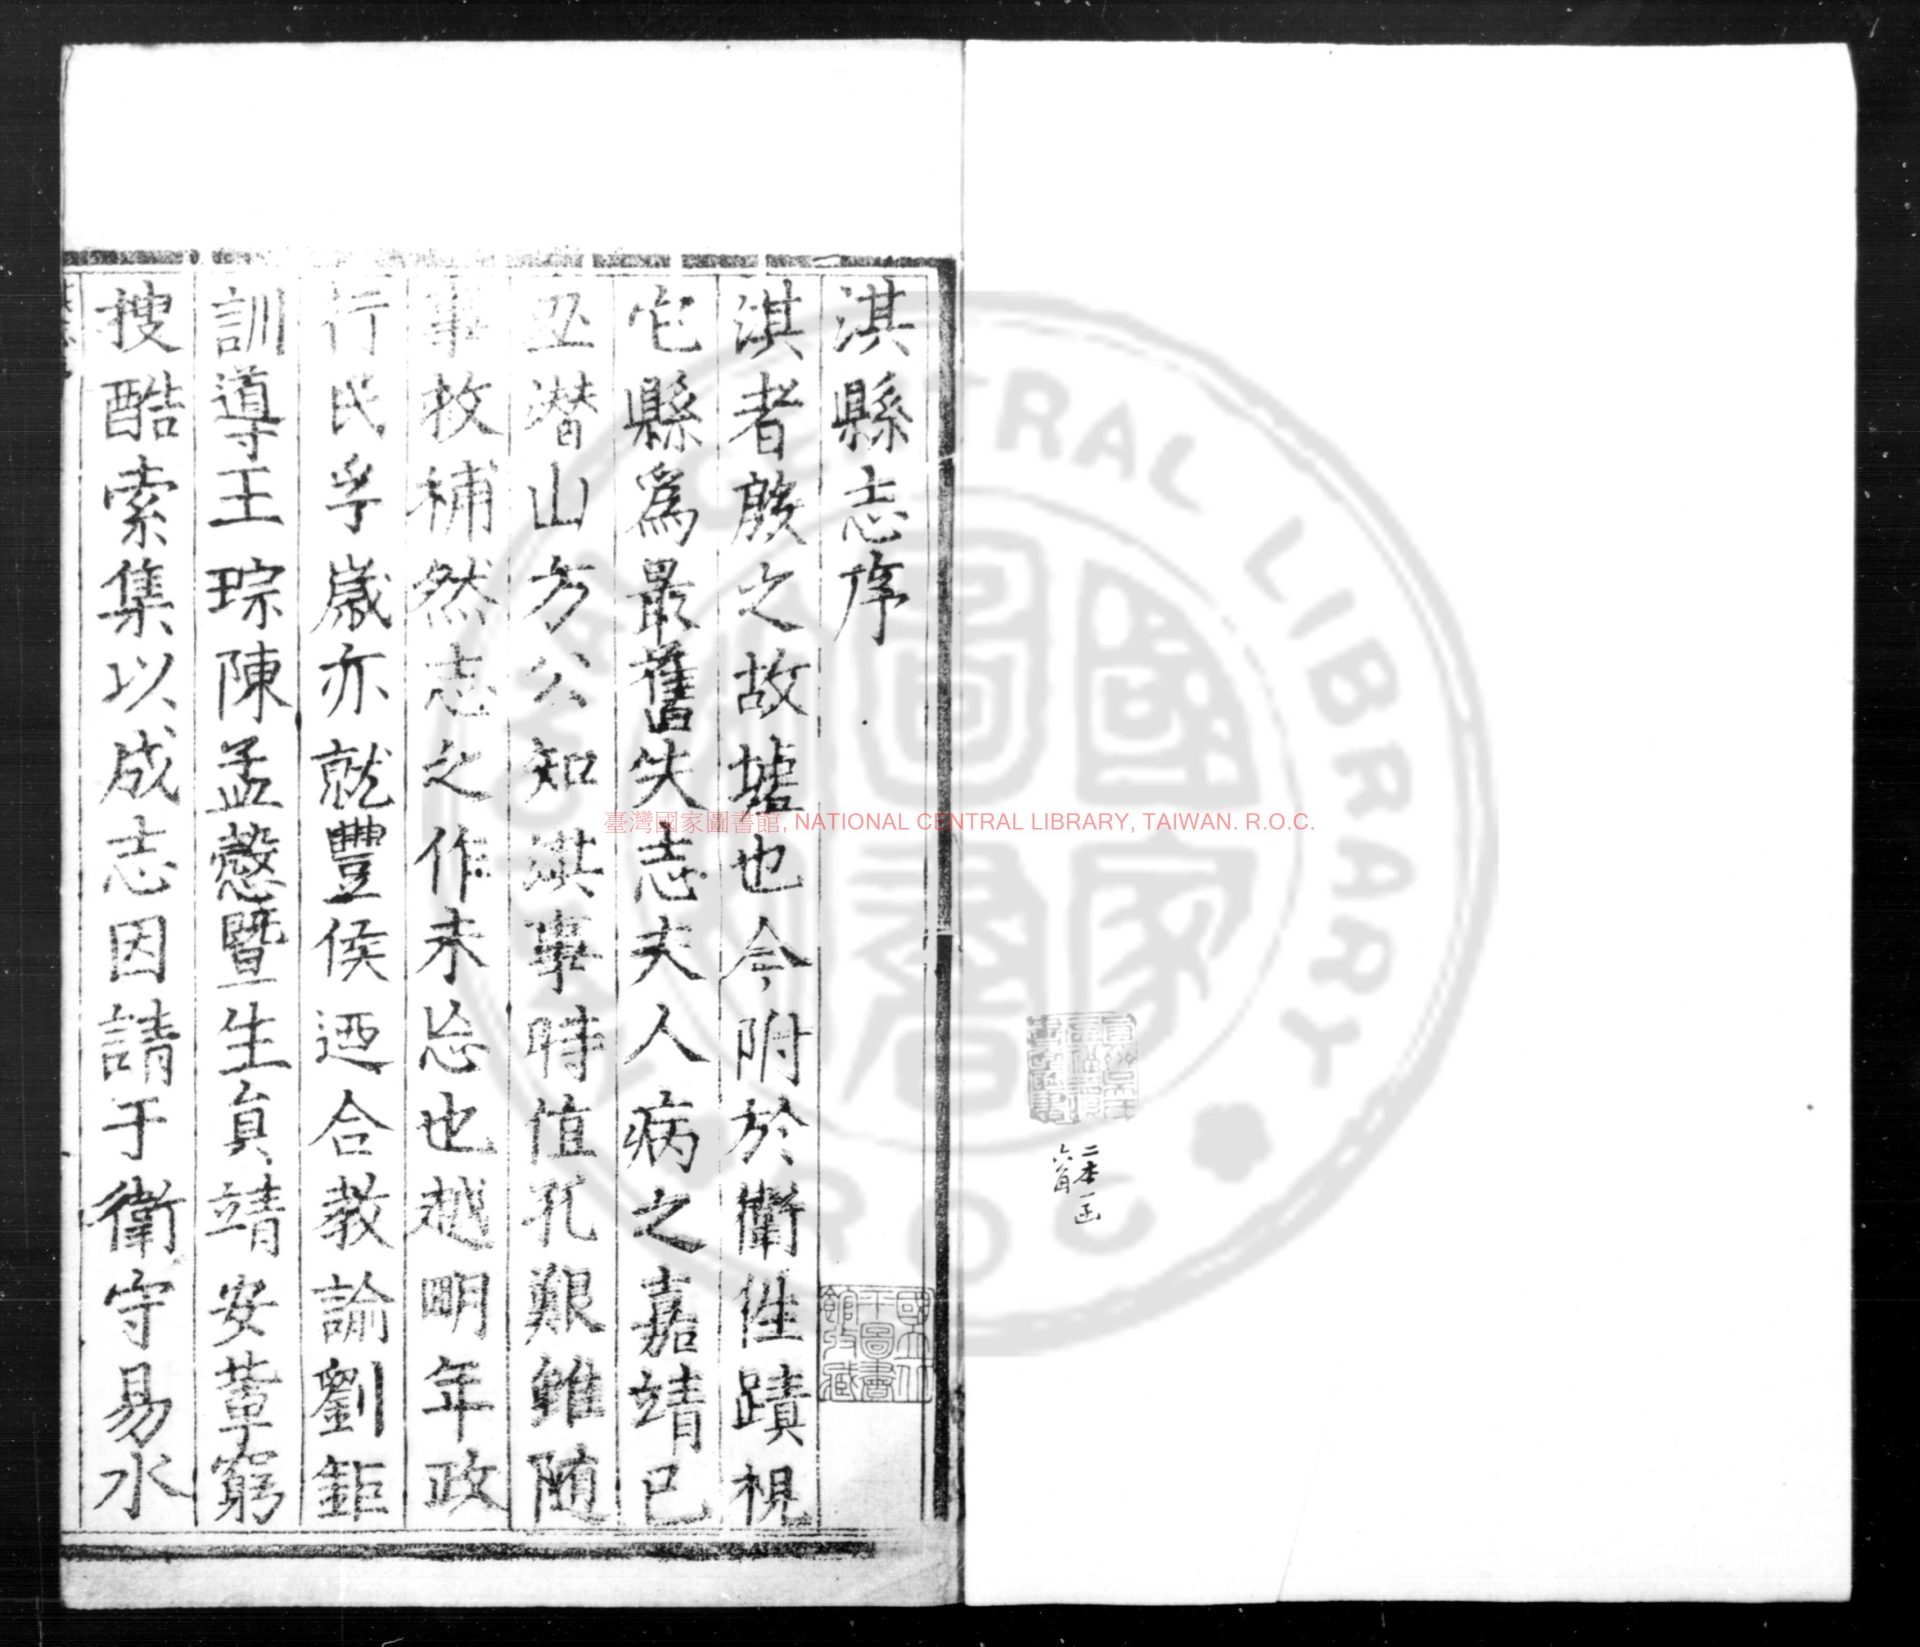 淇縣志序
淇者殷之故墟也今附於衛徃蹟視
它縣為最舊失志夫人病之嘉靖已
丑潛山方公知淇事時值孔艱雖随
事救補然志之作未忘也越明年政
行民孚歲亦就豐侯迺合教諭劉鉅
訓導王琮陳孟慤暨生員靖安葦窮
搜酷索集以成志因請于衛守易水
二本一函
臺灣國家圖書館, NATIONAL CENTRAL LIBRARY, TAIWAN. R.O.C.
國立北平圖書館收藏